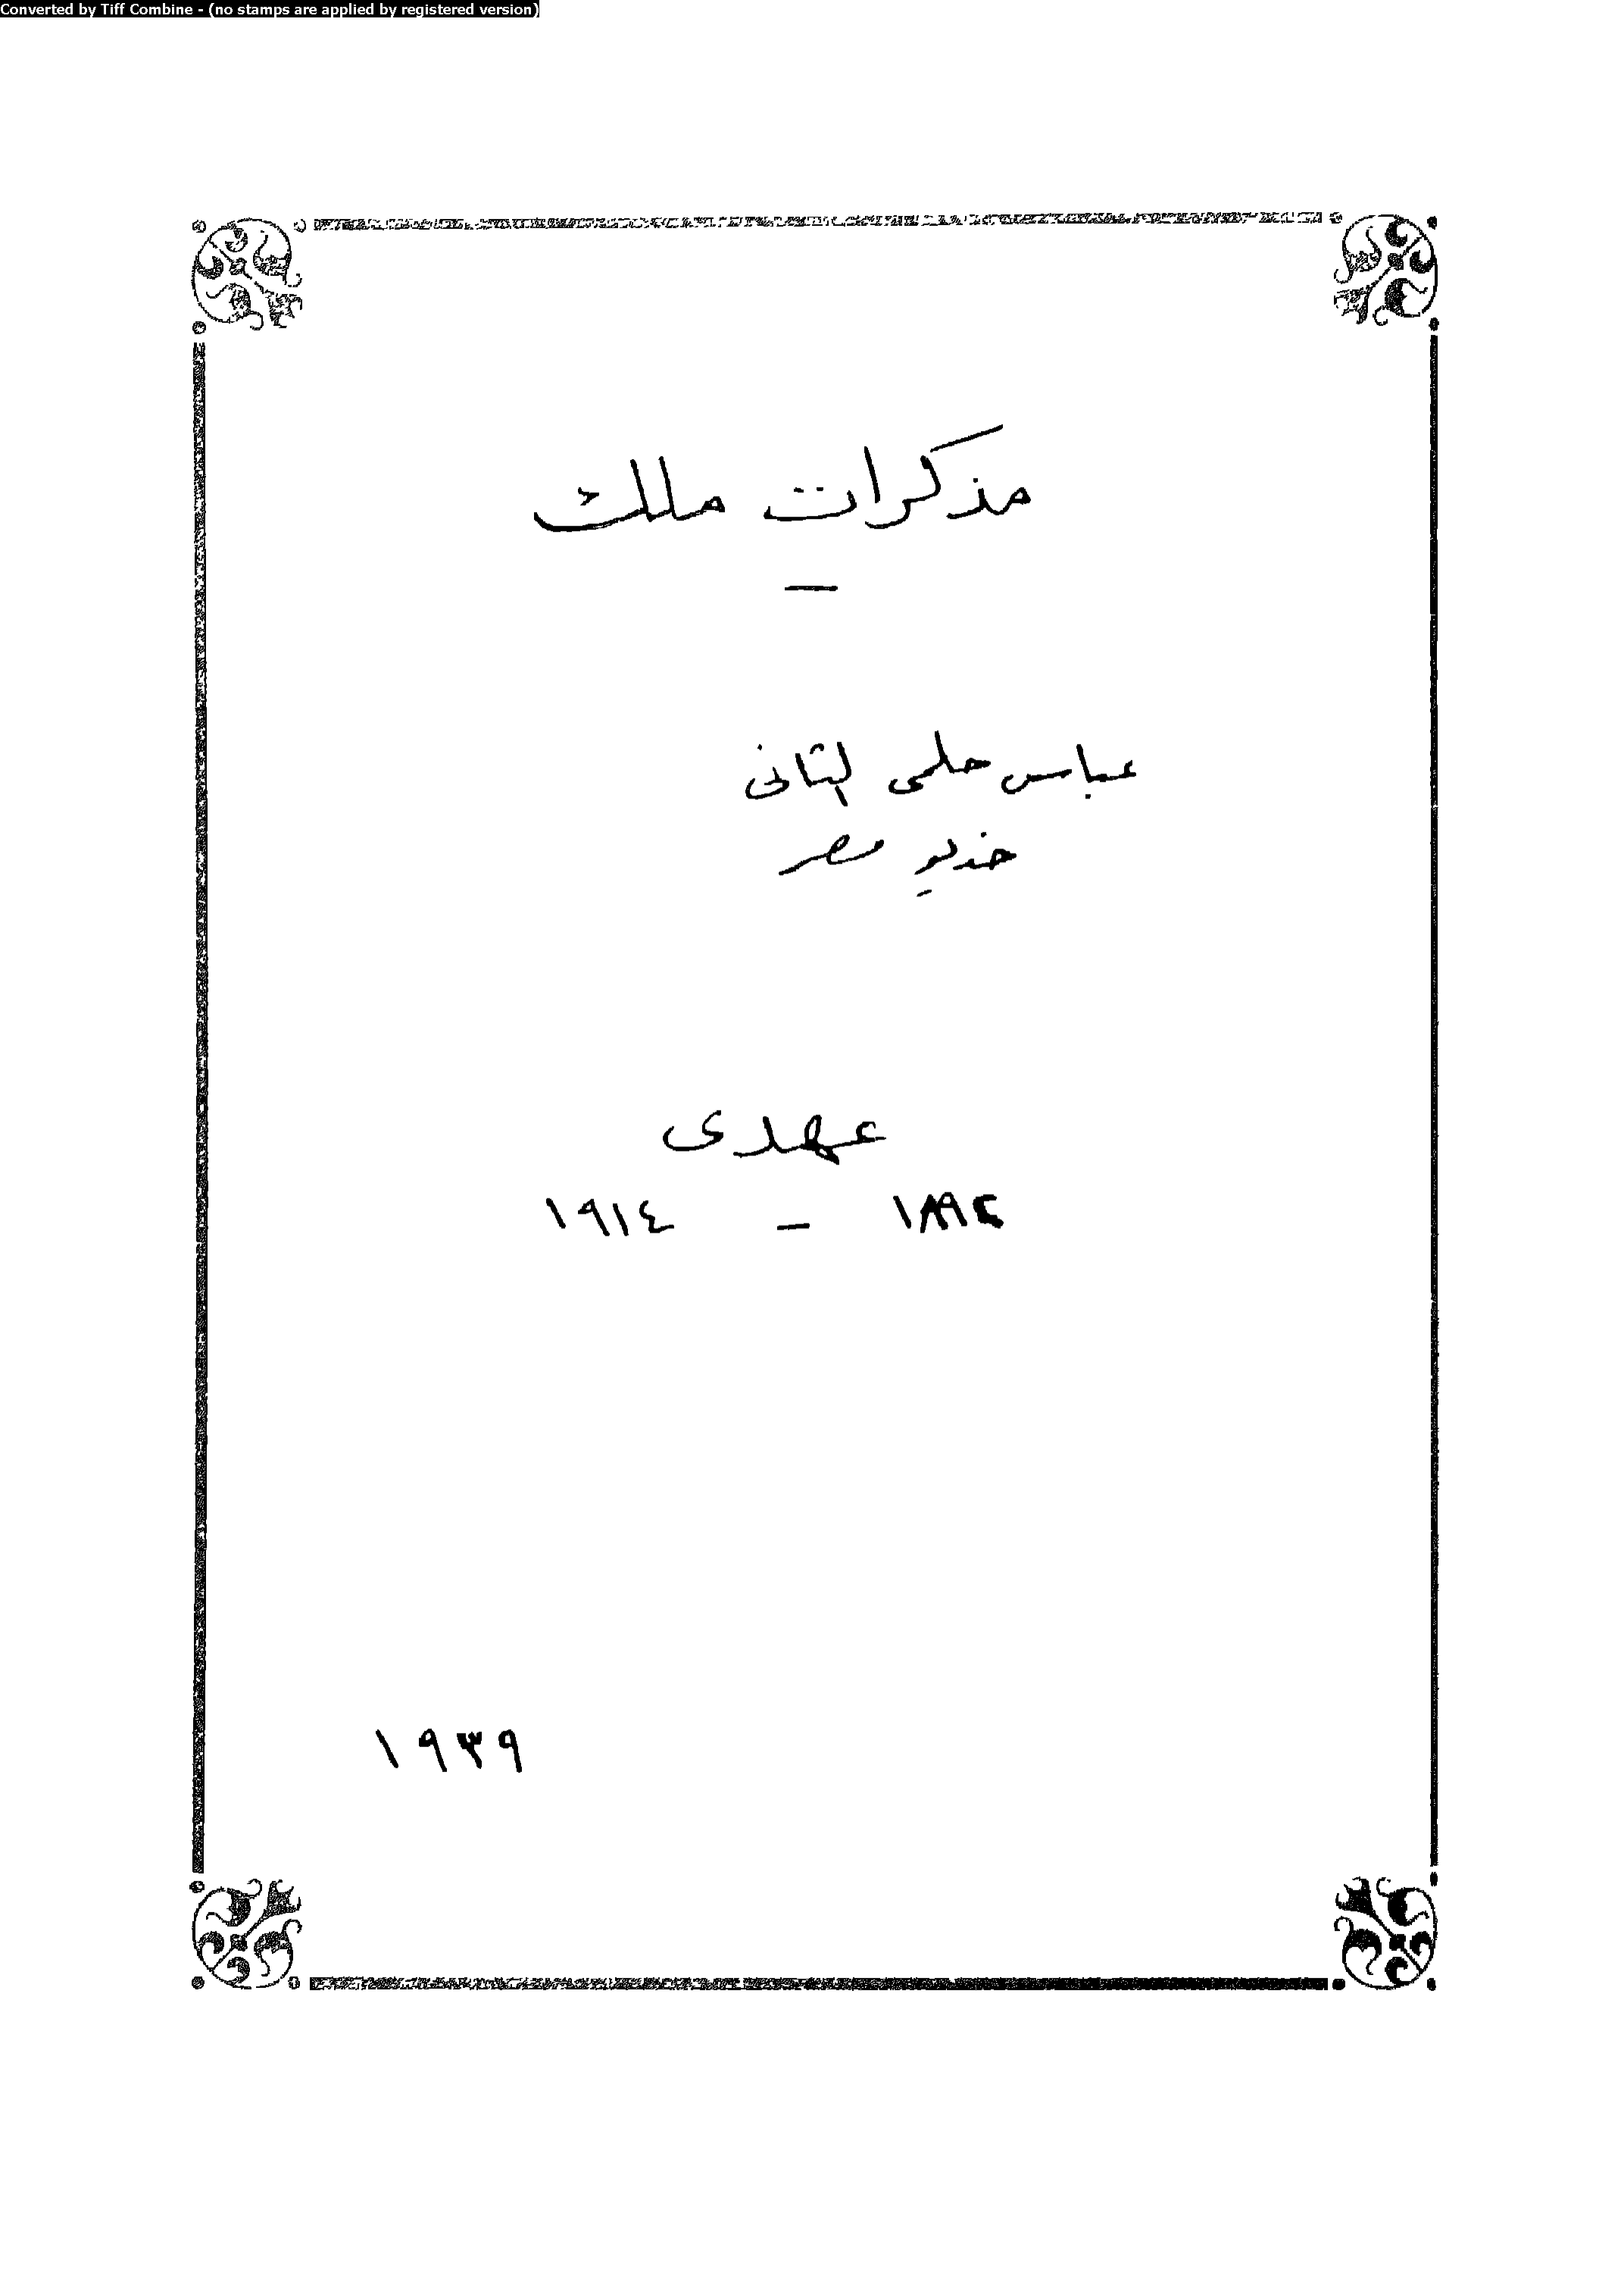 Converted by Tiff Combine - (no stamps are applied by registered version)
مذكرات ملك
عباس حلمى الثانى
خديو مصر
عهدى
١٨٩٢ - ١٩١٤
١٩٣٩